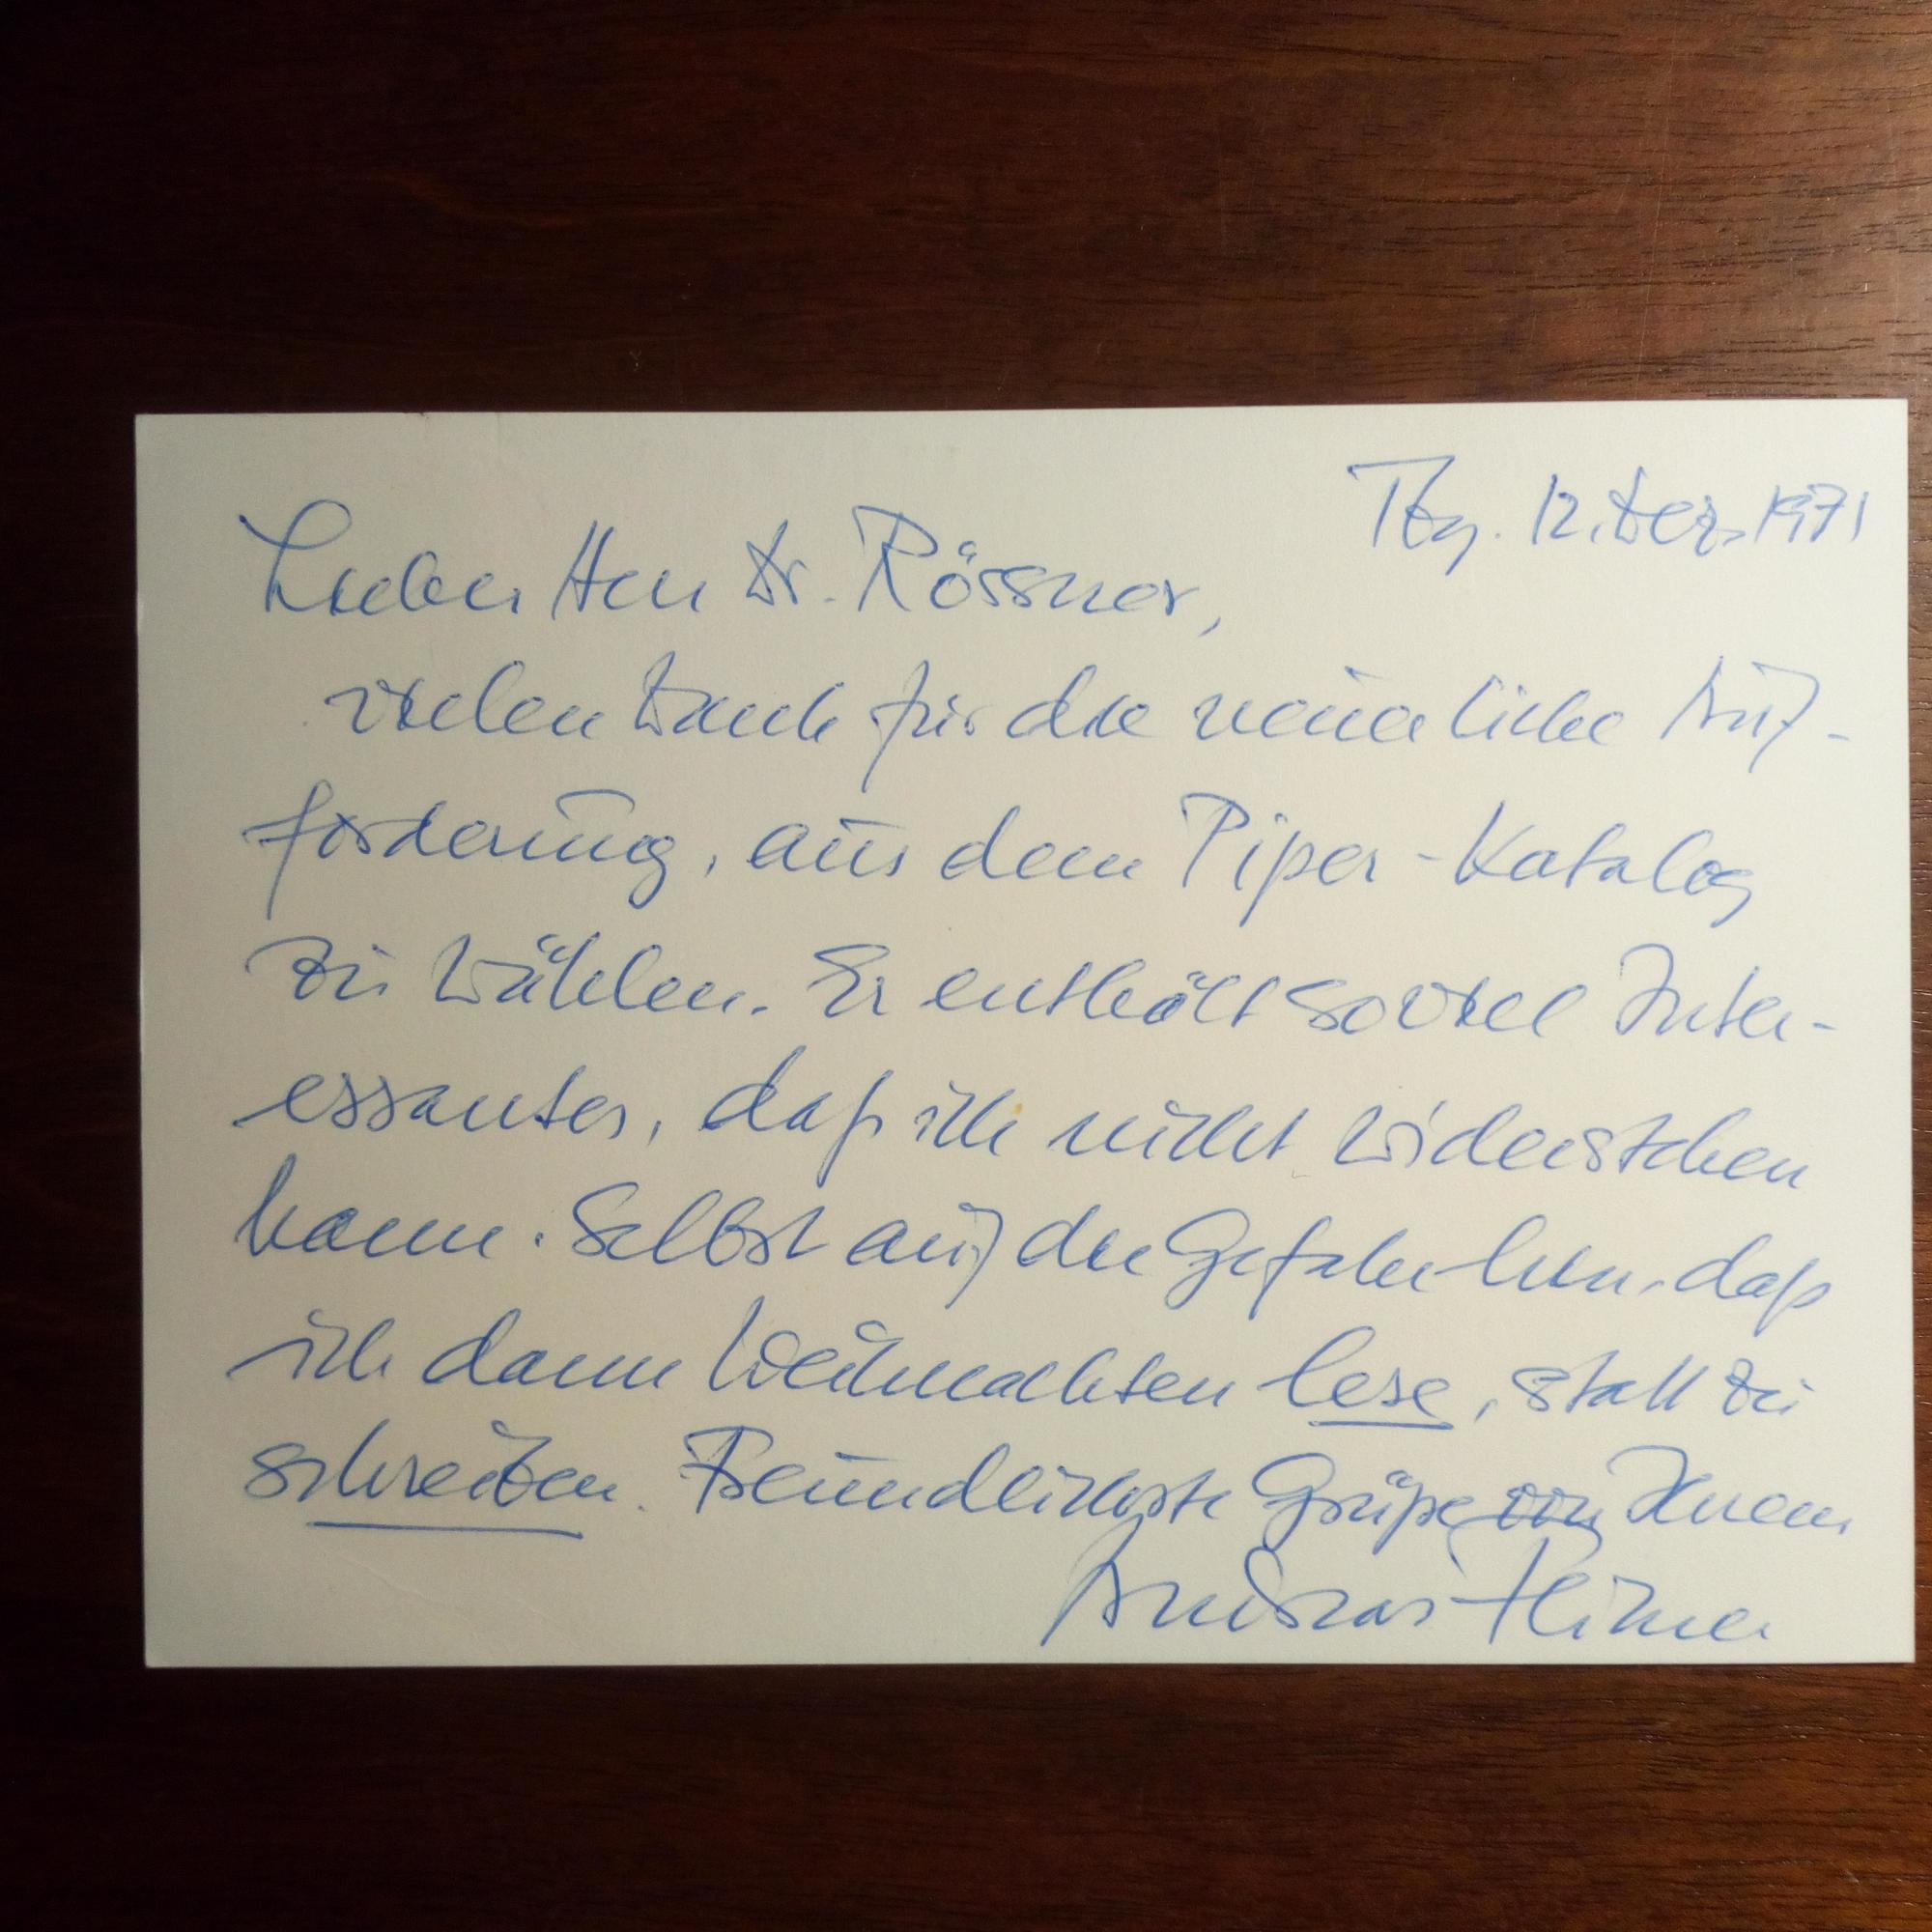 Tbg. 12. Dez. 1971
Lieber Herr Dr. Rössner,
vielen Dank für die neuerliche Auf-
forderung, aus dem Piper-Katalog
zu wählen. Er enthält soviel Inter-
essantes, daß ich nicht widerstehen
kann. Selbst auf die Gefahr hin, daß
ich dann Weihnachten lese, statt zu
schreiben. Freundlichste Grüße von Ihrem
Andreas Flitner